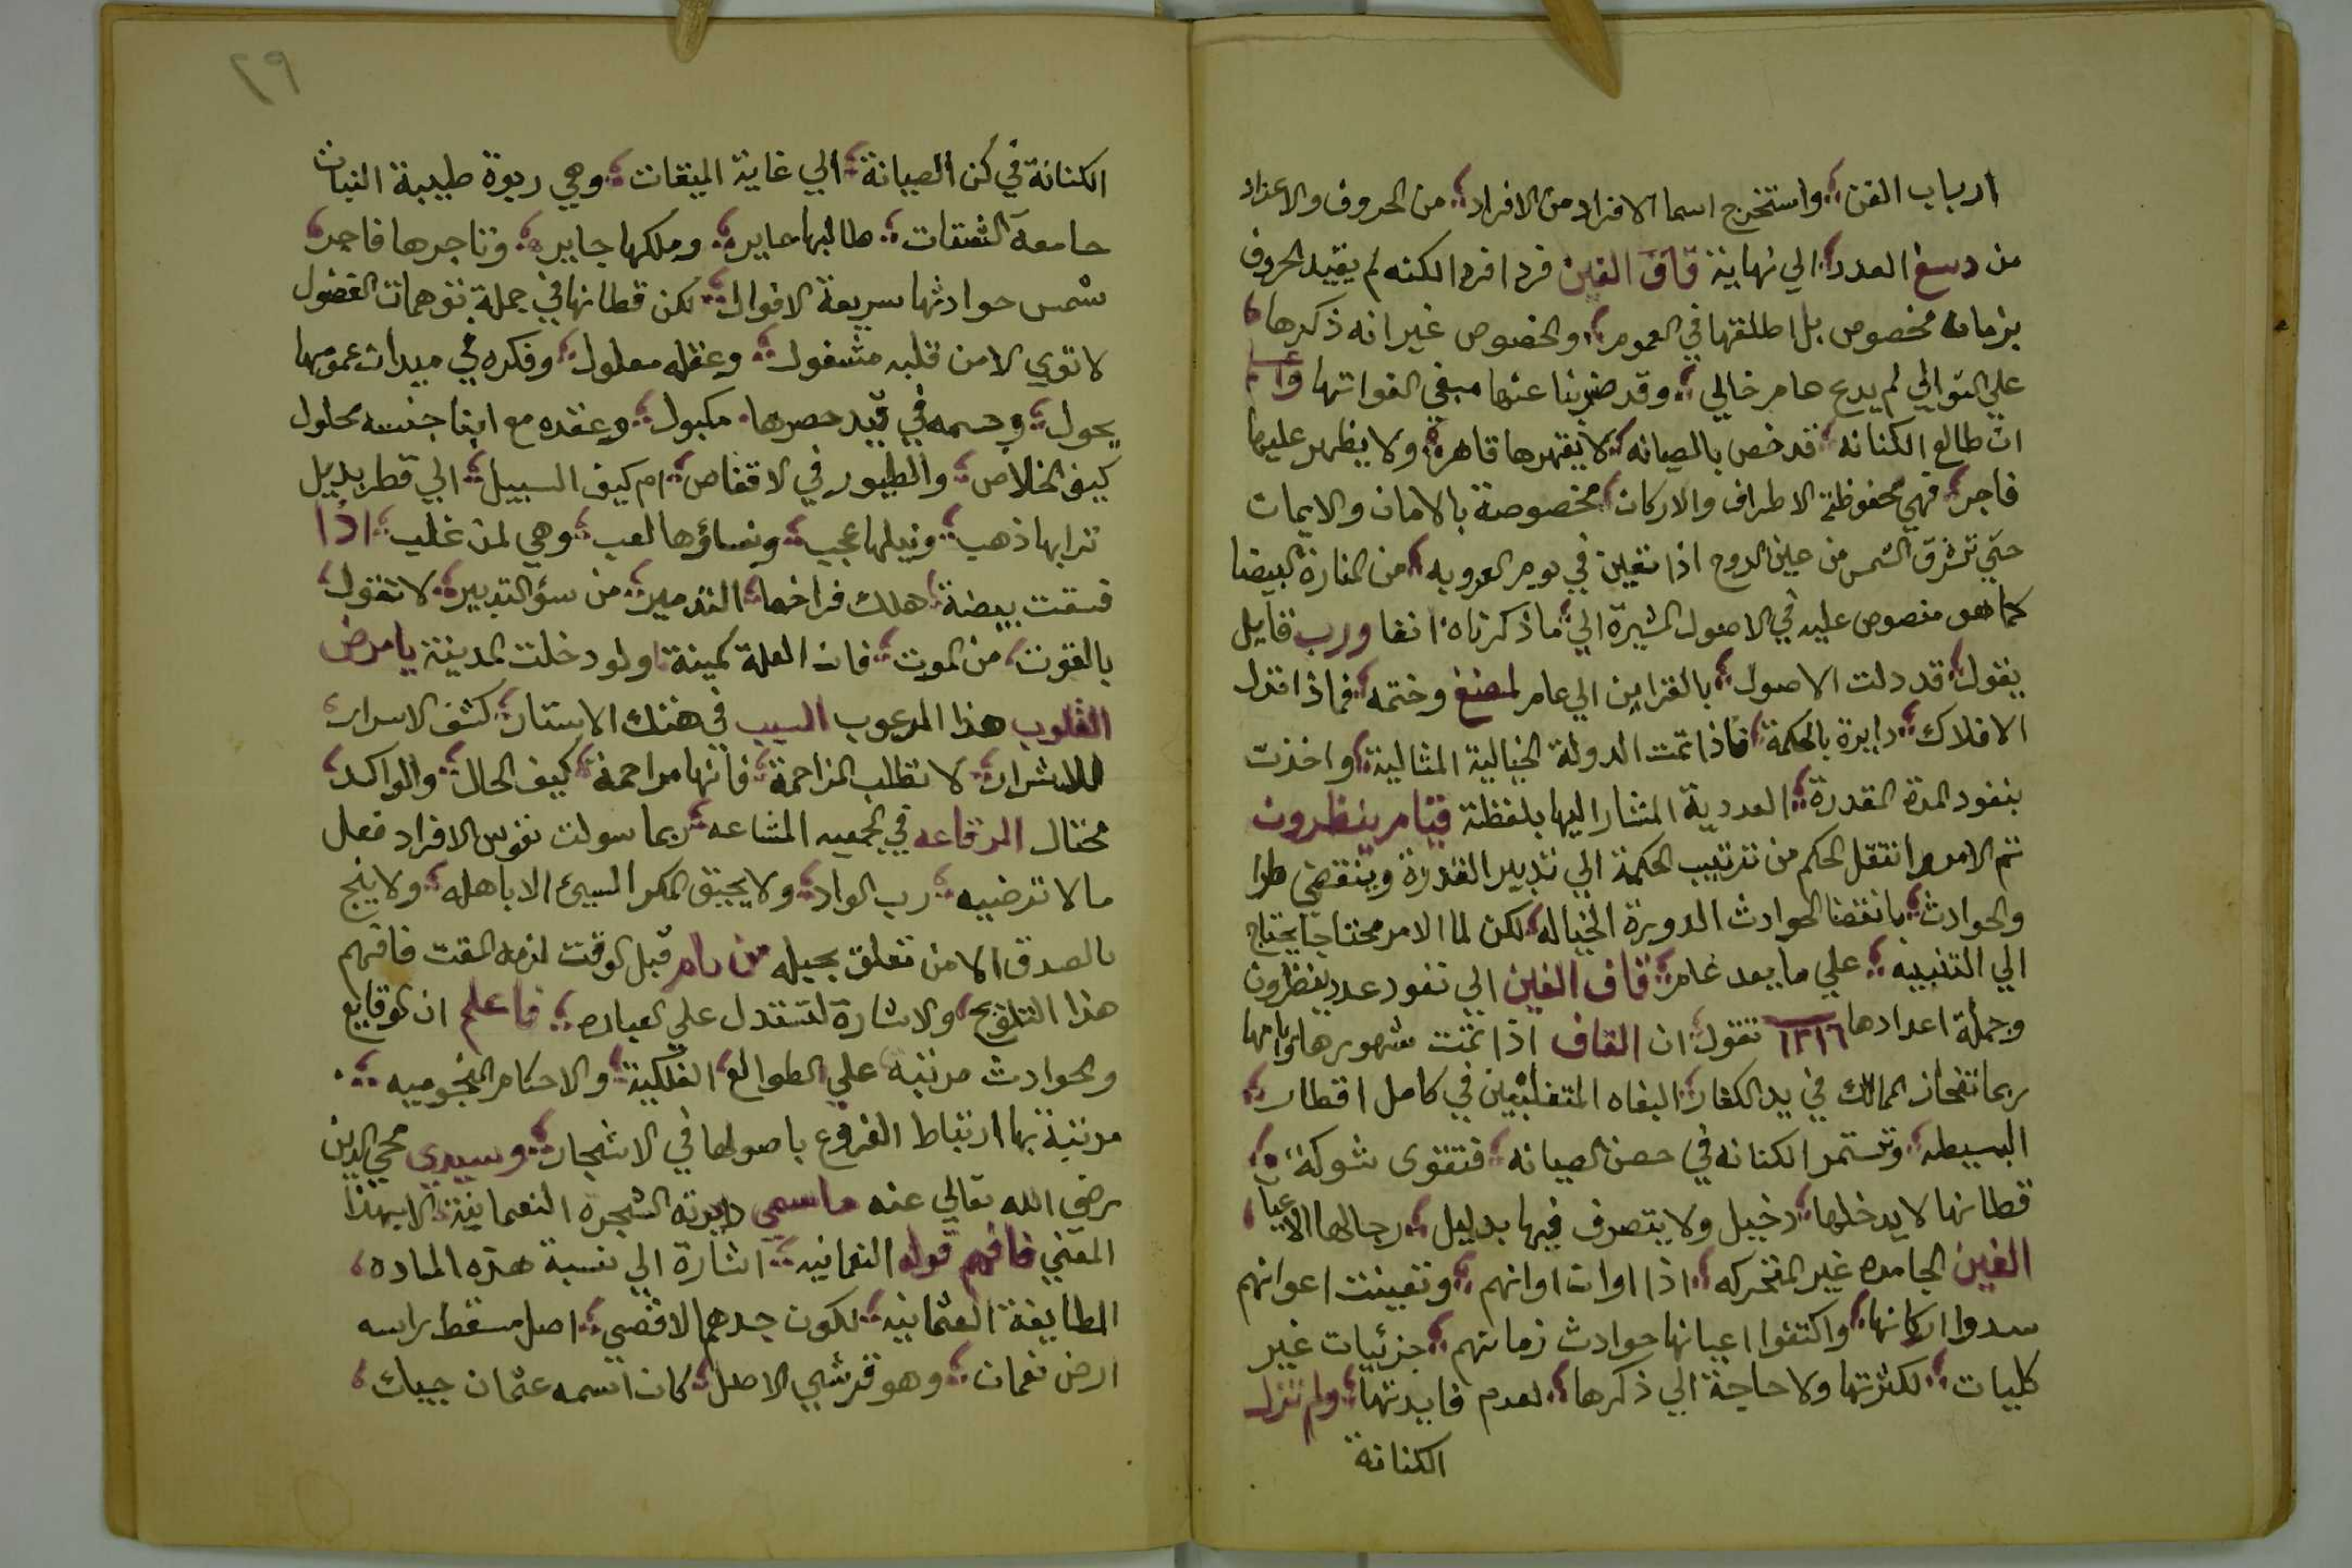 ارباب الفن واستخرج اسما الافراد من الافراد من الحروف والاعداد
من دسغ العدد الي نهاية قاف الغين فردا فردا لكنه لم يقيد الحروف
بزمان مخصوص بل اطلقها في العموم والخصوص غير انه ذكرها
علي التوالي لم يدع عامر خالي وقد ضربنا عنها مبقي الفواتها
ان طالع الكنانه قد خص بالصيانه لا يقهرها قاهر ولا يظهر عليها
فاجر فهي محفوظة الاطراف والاركان مخصوصة بالامان والايمان
حتي تشرق الشمس من عين الدوح اذا تعين في يوم العروبه من المنارة البيضا
كما هو منصوص عليه في الاصول المشيرة الي ما ذكرناه انفا ورب قايل
يقول قد دلت الاصول بالقراين الي عامر لصنغ وختمه فماذا قتدل
الافلاك دايرة بالحكمة فاذا تمت الدولة الخيالية المثالية واخذت
بنفود المدة المقدرة العددية المشار اليها بلفظة قيام ينظرون
تم الامر وانتقل الحكم من ترتيب الحكمة الي تدبير القدرة وينقضي طرا
والحوادث بانقضا الحوادث الدويرة الخياله لكن لما الامر محتاجا يحتاج
الي التنبيه علي ما بعد غامر قاف الغين الي نفود عدد ينظرون
وجملة اعدادها ١٢١٦ تقول ان القاف اذا تمت شهورها وايامها
ربما تنحاز الممالك في يد الكفار البغاه المتغلبين في كامل اقطار
البسيطه وتستمر الكنانه في حصن الصيانه فتقوى شوكة
قطانها لا يدخلها دخيل ولا يتصرف فيها بدليل رجالها الاعيا
الغين الجامده غير المتحركه اذا اوان اوانهم وتعينت اعوانهم
سدوا اركانها واكتفوا اعيانها حوادث زمانهم جزئيات غير
كليات لكثرتها ولا حاجة الي ذكرها لعدم فايدتها ولم تزل
الكنانة
٢٩
الكنانة في كن الصيانة الي غاية الميقات وهي ربوة طيبة النبات
جامعة الشتات طالبها حاير وملكها جاير وتاجرها فاجر
شمس حوادثها سريعة الافوال لكن قطانها في جملة توهمات الفضول
لا توي الا من قلبه مشغول وعقله معلول وفكره في ميدان عمومها
يجول وجسمه في قيد حصرها مكبول وعقده مع ابنا جنسه محلول
كيف الخلاص والطيور في الاقفاص ام كيف السبيل الي قطر بديل
ترابها ذهب ونيلها عجيب ونساؤها لعب وهي لمن غلب اذا
فسقت بيضة هلك فراخها التدمير من سؤ التدبير لا تقول
بالفوت من الموت فان العلة كمينة ولو دخلت المدينة يا مرض
القلوب هذا المرعوب السبب في هتك الاستار كشف الاسرار
للاشرار لا تطلب المزاحمة فانها مراحمة كيف الحال والواكد
محتال الرقاعه في الجمعيه المشاعه ربما سولت نفوس الافراد فعل
ما لا ترضيه رب الواد ولا يحيق المكر السيئ الا باهله ولا ينج
بالصدق الا من تعلق بحبله من رام قبل الوقت لزمه المقت فافهم
هذا التلويح والاشارة لتستدل علي العباره فاعلم ان الوقايع
والحوادث مرتبه علي الطوالع الفلكية والاحكام النجوميه
مرتبة بها ارتباط الفروع باصولها في الاشجار وسيدي محي الدين
رضي الله تعالي عنه ما سمي دايرته الشجرة النعمانية الا بهذا
المعني فافهم قوله النعمانيه اشارة الي نسبة هذه الماده
الطايفة العثمانيه لكون جدهم الاقصي اصل مسقط راسه
ارض نعمان وهو قرشي الاصل كان اسمه عثمان جيبك